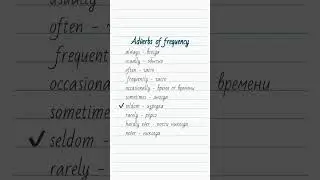 usually
often -
frequent
occasional
sometime
✓ seldom -
rarely -
Adverbs of frequency
always - всегда
usually - обычно
often - часто
frequently - часто
occasionally - время от времени
sometimes - иногда
✓ seldom - изредка
rarely - редко
hardly ever - почти никогда
never - никогда
времени